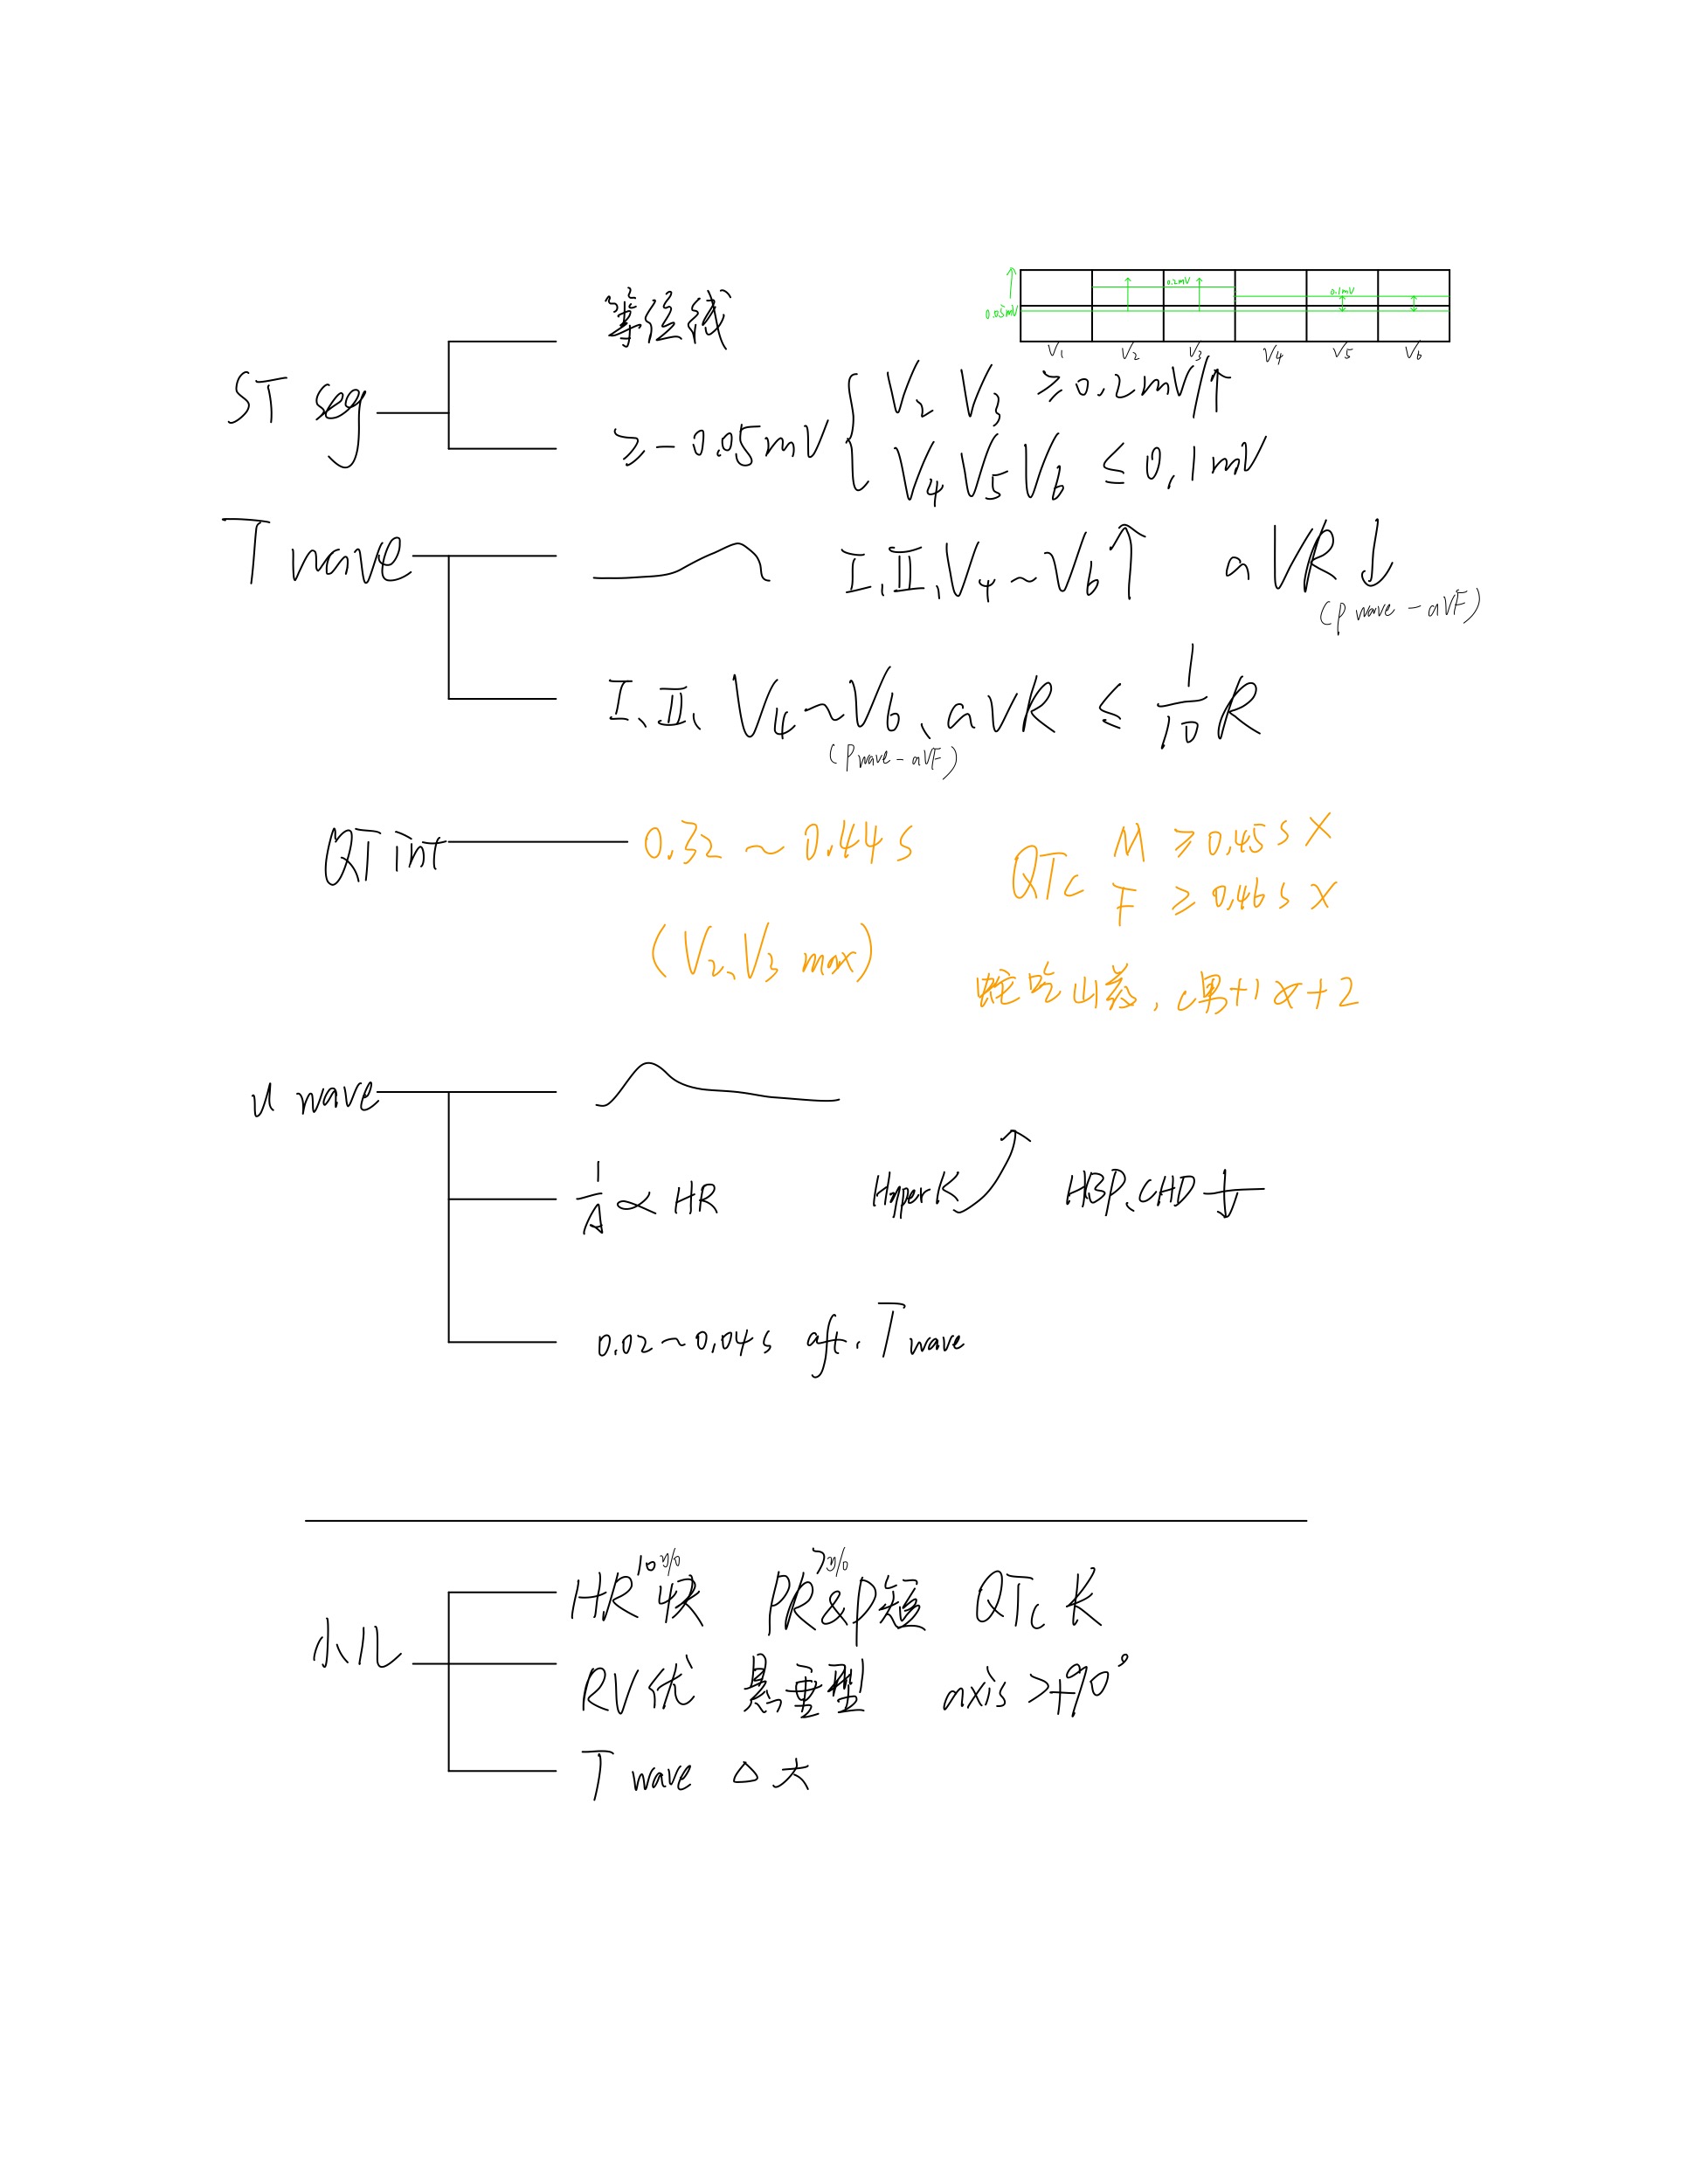 等位线
0.05mV 0.2mV 0.1mV
V1 V2 V3 V4 V5 V6
ST seg
≥-0.05mV { V2 V3 ≥0.2mV/↑
V4 V5 V6 ≤0.1mV
T wave
I、II、V4~V6↑ aVR↓
(P wave - aVF)
I、II、V4~V6、aVR ≤ 1/10 R
(P wave - aVF)
QT int 0.32~0.44s
QTc M ≥0.45s X
F ≥0.46s X
(V2、V3 max)
蛇吃山药, c男+1女+2
u wave
1/A ∝ HR HyperK HBP、CHD
0.02~0.04s aft. T wave
小儿
HR快 PR&P短 QTc
RV优 悬垂型 axis>+90°
T wave △大